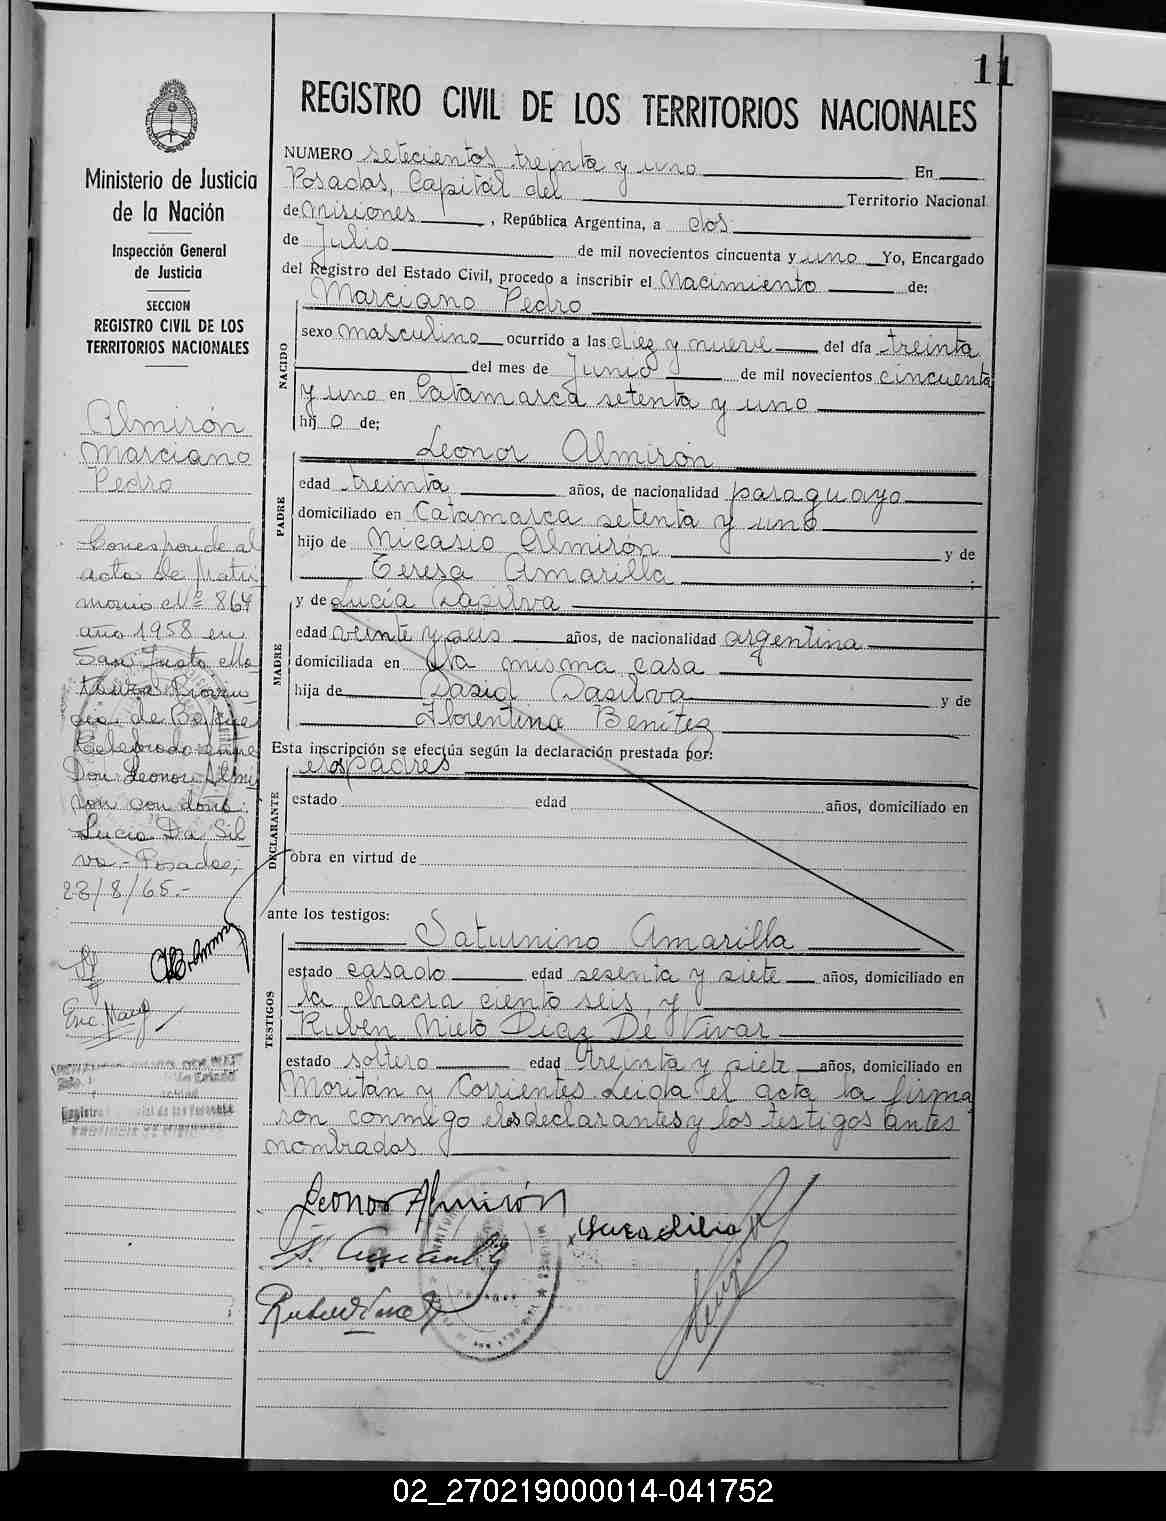 11
REGISTRO CIVIL DE LOS TERRITORIOS NACIONALES
Ministerio de Justicia
de la Nación
Inspección General
de Justicia
SECCION
REGISTRO CIVIL DE LOS
TERRITORIOS NACIONALES
Almirón
Marciano
Pedro
Corresponde al
acta de Matri
monio Nº 864
año 1958 en
San Justo Ma
tanza Provin
cia de
Celebrado entre
Don Leonor Almi
ron con doña
Lucia Da Sil
va.- Posadas,
23/8/65.-
NUMERO setecientos treinta y uno En
Posadas, Capital del Territorio Nacional
de Misiones, República Argentina, a dos
de Julio de mil novecientos cincuenta y uno Yo, Encargado
del Registro del Estado Civil, procedo a inscribir el Nacimiento de:
NACIDO
Marciano Pedro
sexo masculino ocurrido a las diez y nueve del día treinta
del mes de Junio de mil novecientos cincuenta
y uno en Catamarca setenta y uno
hij o de:
PADRE
Leonor Almirón
edad treinta años, de nacionalidad paraguayo
domiciliado en Catamarca setenta y uno
hijo de Nicasio Almirón y de
Teresa Amarilla ;
MADRE
y de Lucía Dasilva
edad veinte y seis años, de nacionalidad argentina
domiciliada en la misma casa
hija de David Dasilva y de
Florentina Benítez
Esta inscripción se efectúa según la declaración prestada por:
DECLARANTE
los padres
estado edad años, domiciliado en
obra en virtud de
ante los testigos:
TESTIGOS
Saturnino Amarilla
estado casado edad sesenta y siete años, domiciliado en
la chacra ciento seis, y
Ruben Nieto Diaz De Vivar
estado soltero edad treinta y siete años, domiciliado en
Moritan y Corrientes. Leida el acta la firma
ron conmigo los declarantes y los testigos antes
nombrados.
Leonor Almirón
02_270219000014-041752